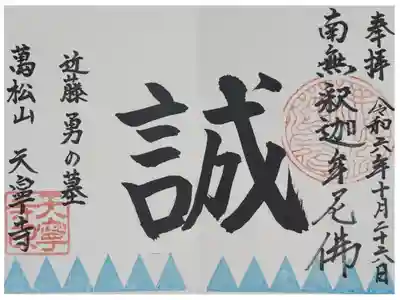 奉拝
令和六年十月二十六日
南無釈迦牟尼佛
誠
近藤勇の墓
萬松山 天寧寺
天寧